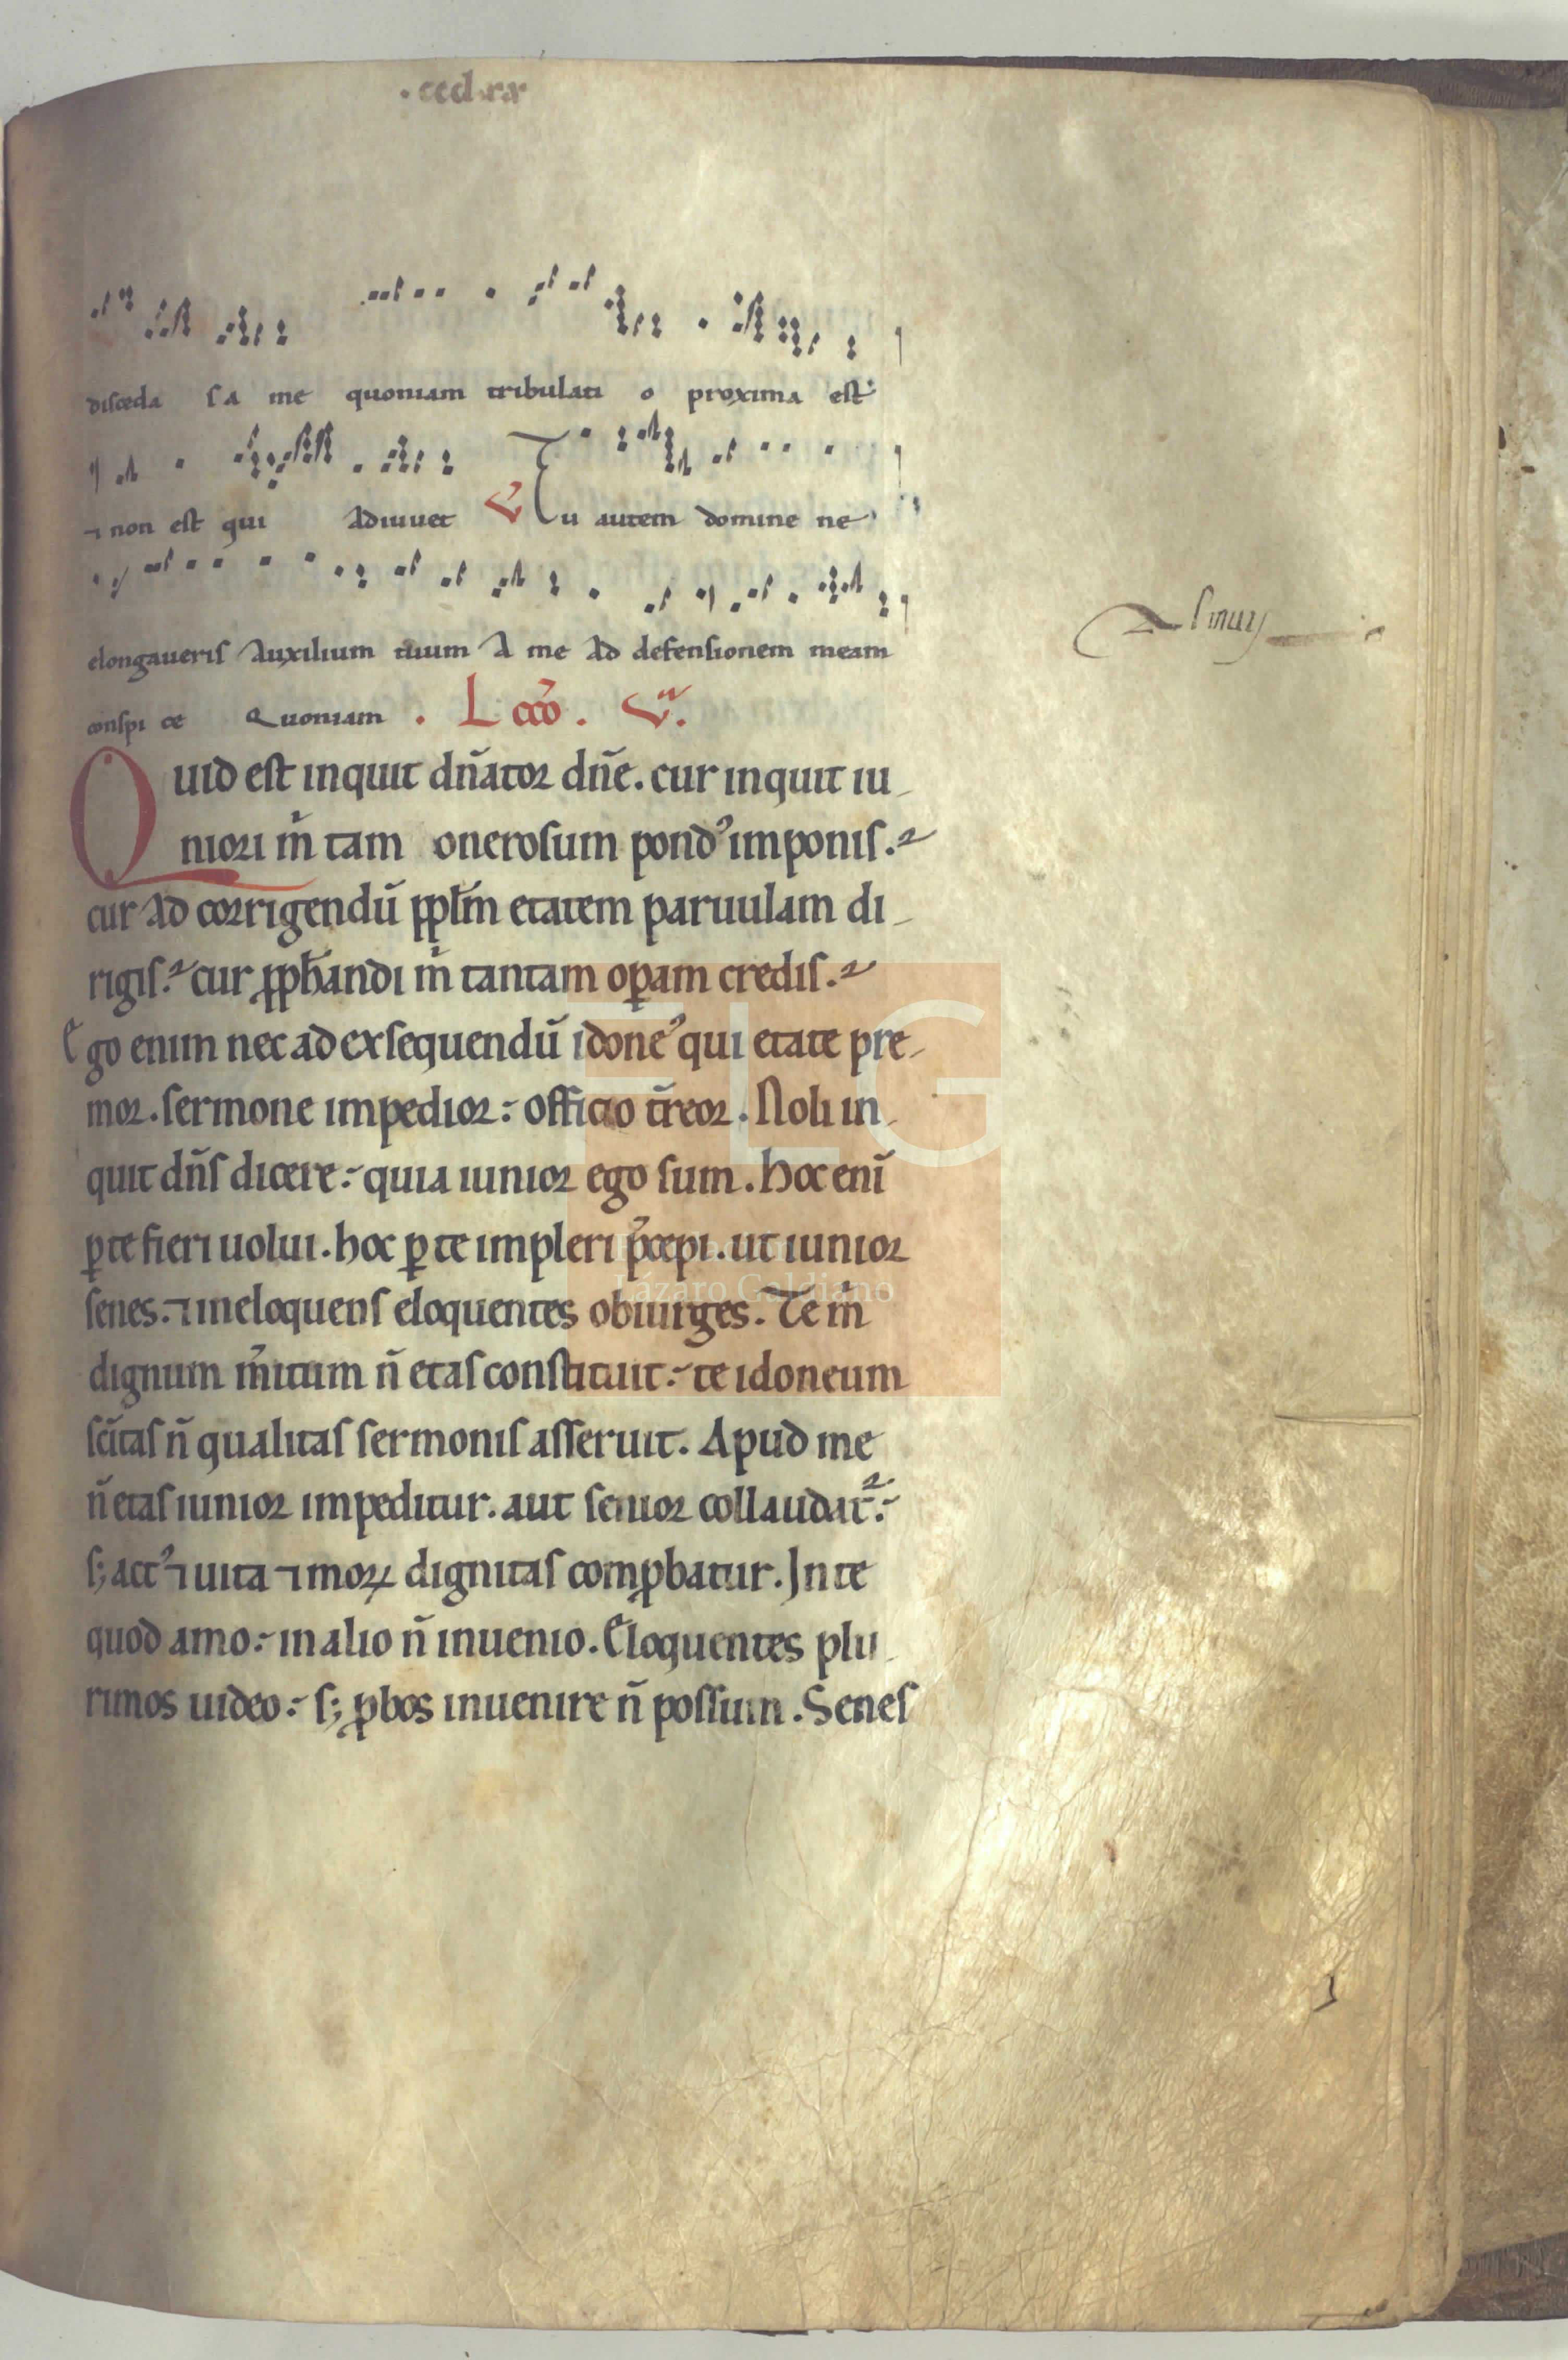 disceda s a me quoniam tribulati o proxima est
⁊ non est qui adiuuet V Tu autem domine ne
elongaueris auxilium tuum a me ad defensionem meam
conspi ce Quoniam . L cco᷃ .
Quid est inquit dn̄ator dn̄e. cur inquit iu
niori m̄ tam onerosum pondꝰ imponis.
cur ad corrigendū pplm̄ etatem paruulam di
rigis. cur ꝓph̄andi m̄ tantam oꝑam credis.
Ego enim nec ad exsequendū idoneꝰ qui etate pre
mor. sermone impedior: officio t̄reor. Noli in
quit dn̄s dicere: quia iunior ego sum. hoc enī
ꝑ te fieri uolui. hoc ꝑ te impleri p̄cepi. ut iunior
senes. ⁊ ineloquens eloquentes obiurges. Te m̄
dignum m̄itum n̄ etas constituit: te idoneum
sc̄itas n̄ qualitas sermonis asseruit. Apud me
n̄ etas iunior impeditur. aut senior collaudat᷑:
s; actꝰ ⁊ uita ⁊ moꝝ dignitas comꝓbatur. In te
quod amo: in alio n̄ inuenio. Eloquentes plu
rimos uideo: s; ꝓbos inuenire n̄ possum. Senes
FLG
Lázaro Galdiano